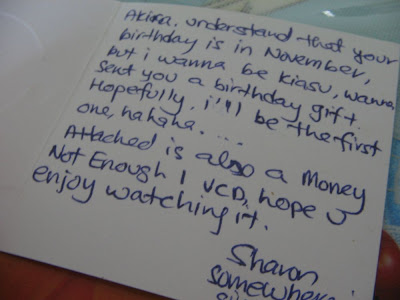 Akira, understand that your
birthday is in November,
but i wanna be kiasu, wanna
sent you a birthday gift.
Hopefully, i'll be the first
one, hahaha....
Attached is also a Money
Not Enough 1 VCD, hope u
enjoy watching it.
Sharon
somewhere